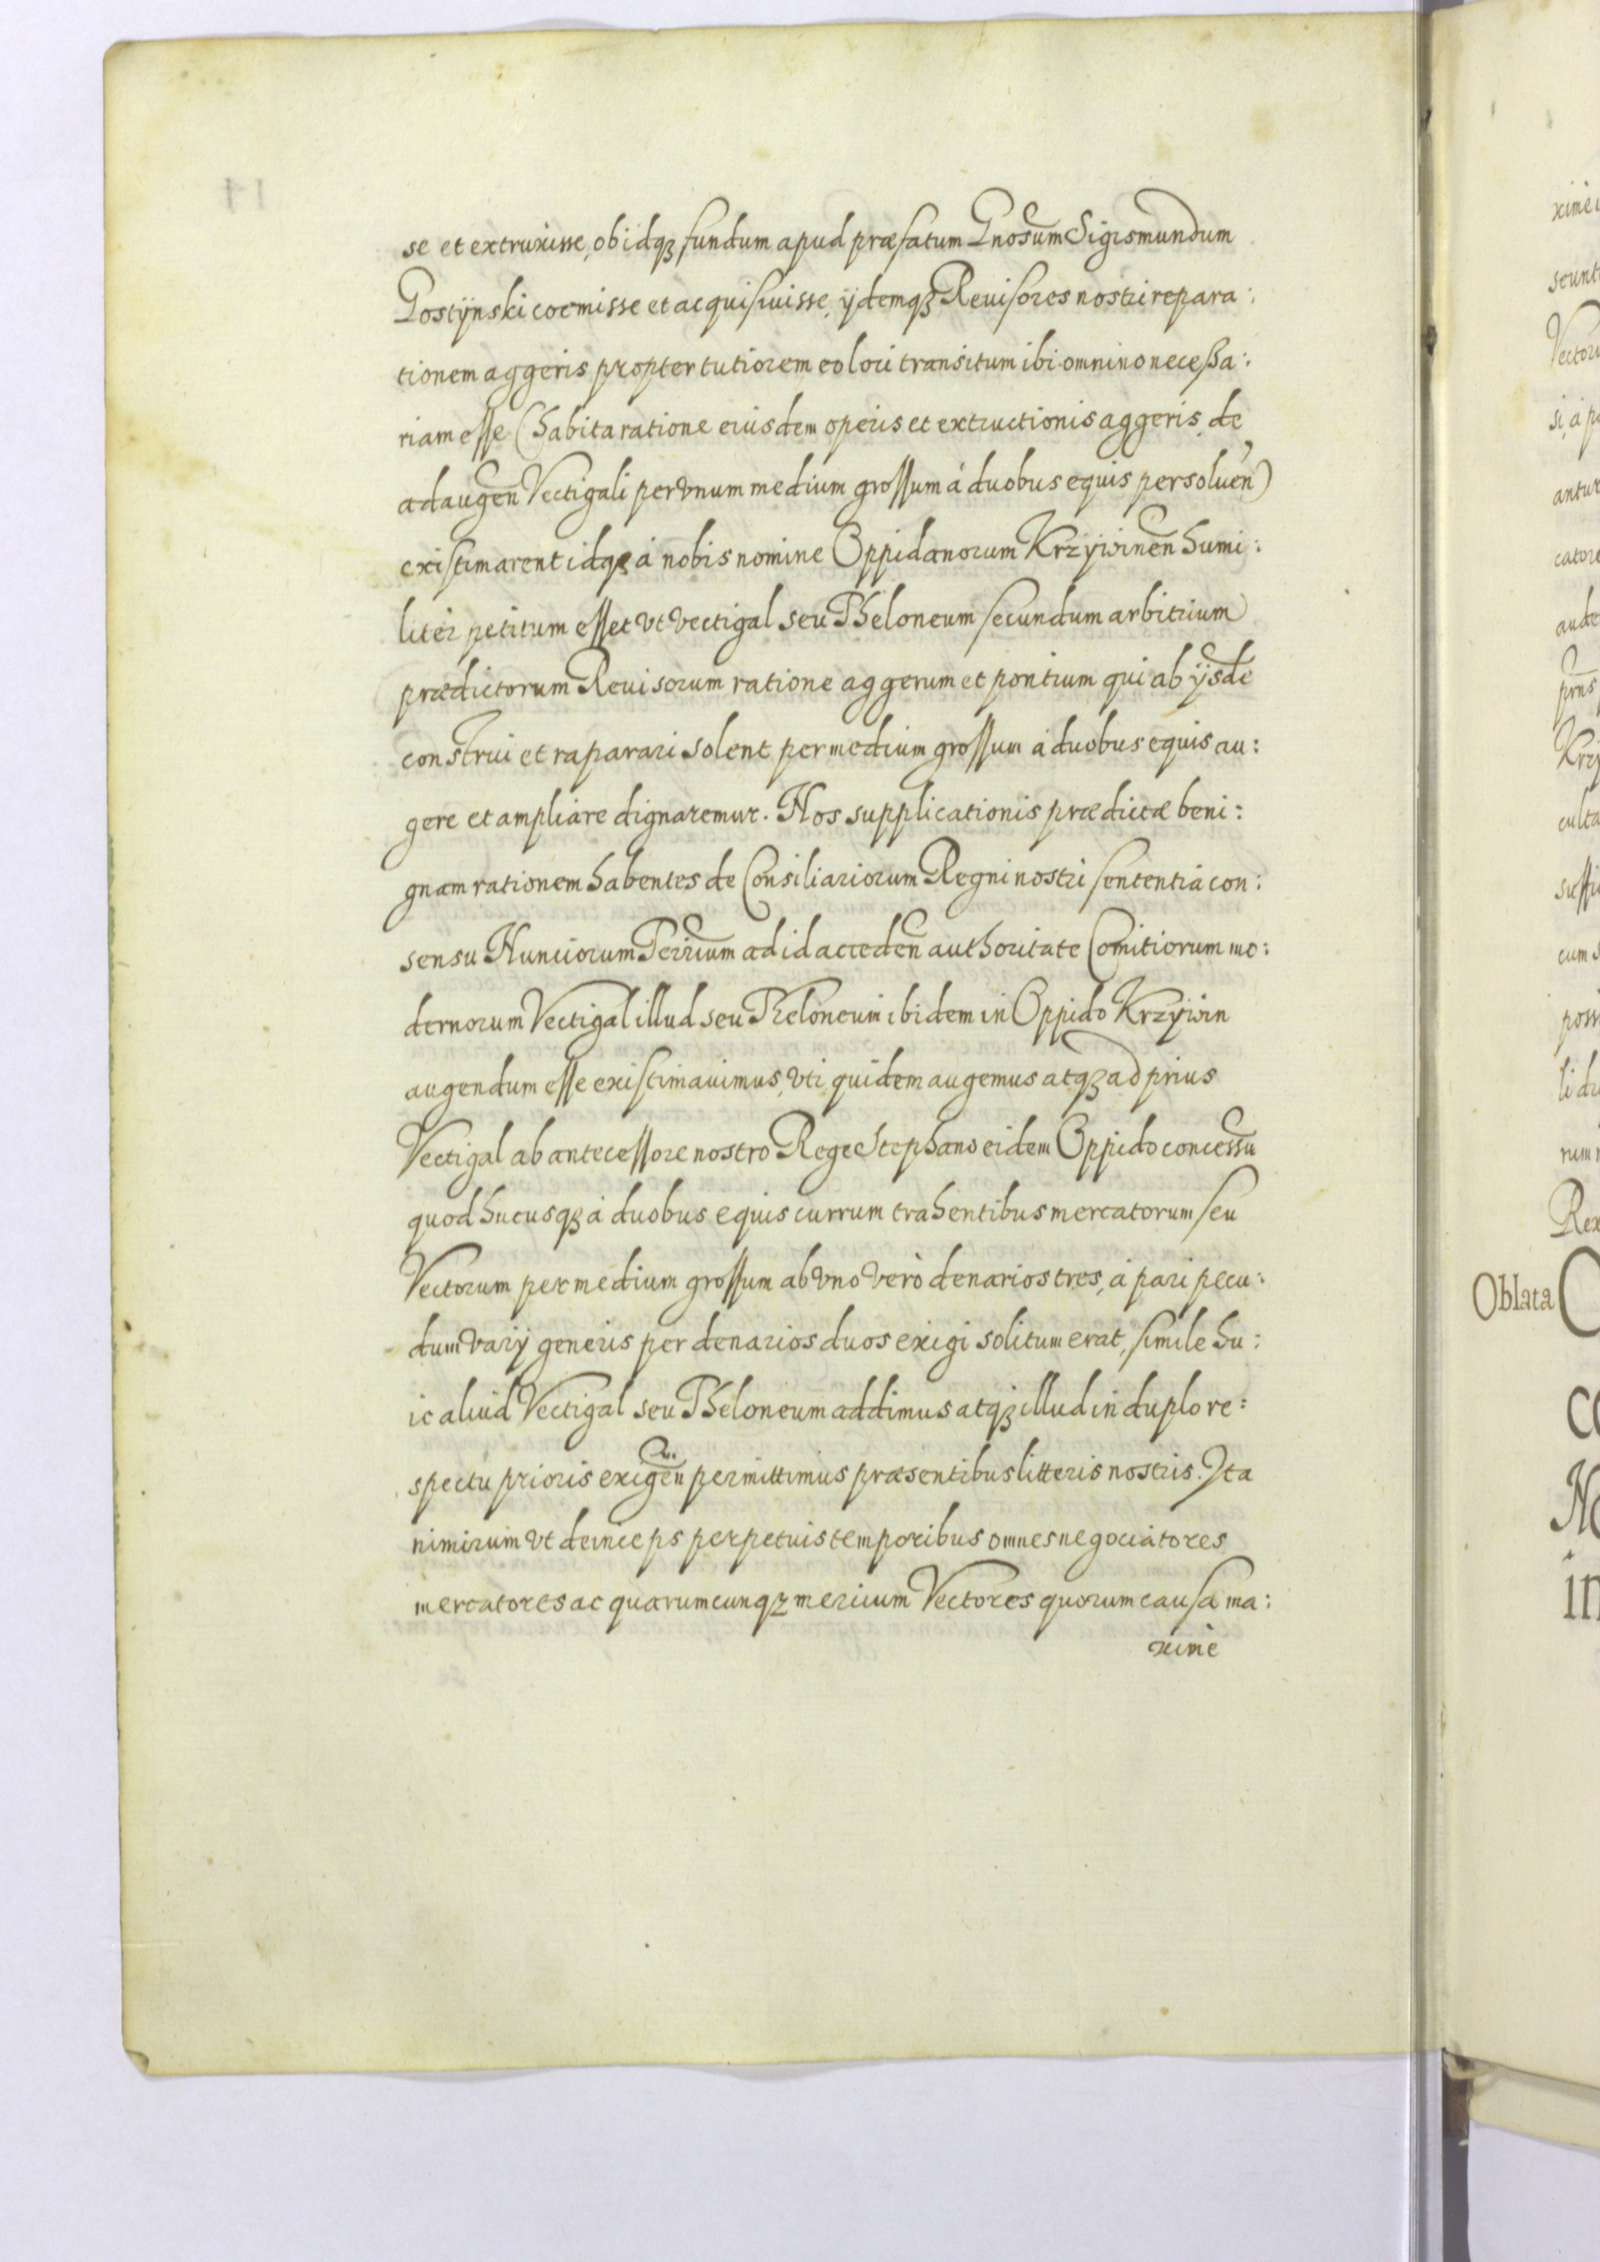 se et extruxisse, ob idqꝫ fundum apud præfatum Gnosum Sigismundum
Gostÿnski coemisse et acquisiuisse, ÿdemqꝫ Reuisores nostri repara:
tionem aggeris propter tutiorem eo loci transitum ibi omnino necessa:
riam esse (habita ratione eiusdem operis et extructionis aggeris, de
adaugen Vectigali per vnum medium grossum à duobus equis persoluen)
existimarent idqꝫ à nobis nomine Oppidanorum Krzÿwinen humi:
liter petitum esset vt vectigal seu Theloneum secundum arbitrium
prædictorum Reuisorum ratione aggerum et pontium qui ab ÿsde
construi et raparari solent per medium grossum à duobus equis au:
gere et ampliare dignaremur. Nos supplicationis prædictæ beni:
gnam rationem habentes de Consiliariorum Regni nostri sententia con:
sensu Nunciorum Terrium ad id acceden authoritate Comitiorum mo:
dernorum Vectigal illud seu Theloneum ibidem in Oppido Krzÿwin
augendum esse existimauimus, vti quidem augemus atqꝫ ad prius
Vectigal ab antecessore nostro Rege Stephano eidem Oppido concessu
quod hucusqꝫ à duobus equis currum trahentibus mercatorum seu
Vectorum per medium grossum ab vno verò denarios tres, à pari pecu:
dum varÿ generis per denarios duos exigi solitum erat, simile hu:
ic aliud Vectigal seu Theloneum addimus atqꝫ illud in duplo re:
spectu prioris exigen permittimus præsentibus litteris nostris. Ita
nimirum vt deinceps perpetuis temporibus omnes negociatores
mercatores ac quarumcunqꝫ mercium Vectores quorum causa ma:
xime
Oblata